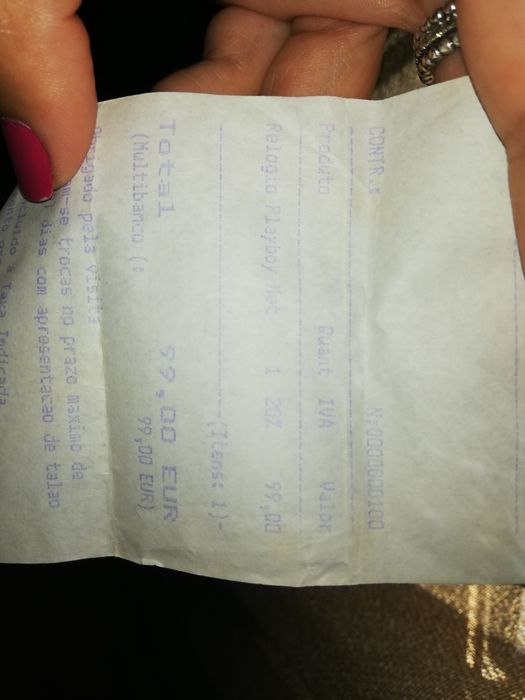 CONTR.: N:0000000100
Produto Quant IVA Valor
Relogio Playboy Met 1 20% 99,00
(Itens: 1)-
Total 99,00 EUR
(Multibanco (: 99,00 EUR)
pela visita
-se trocas no prazo maximo de
dias com apresentacao de talao
a Taxa Indicada